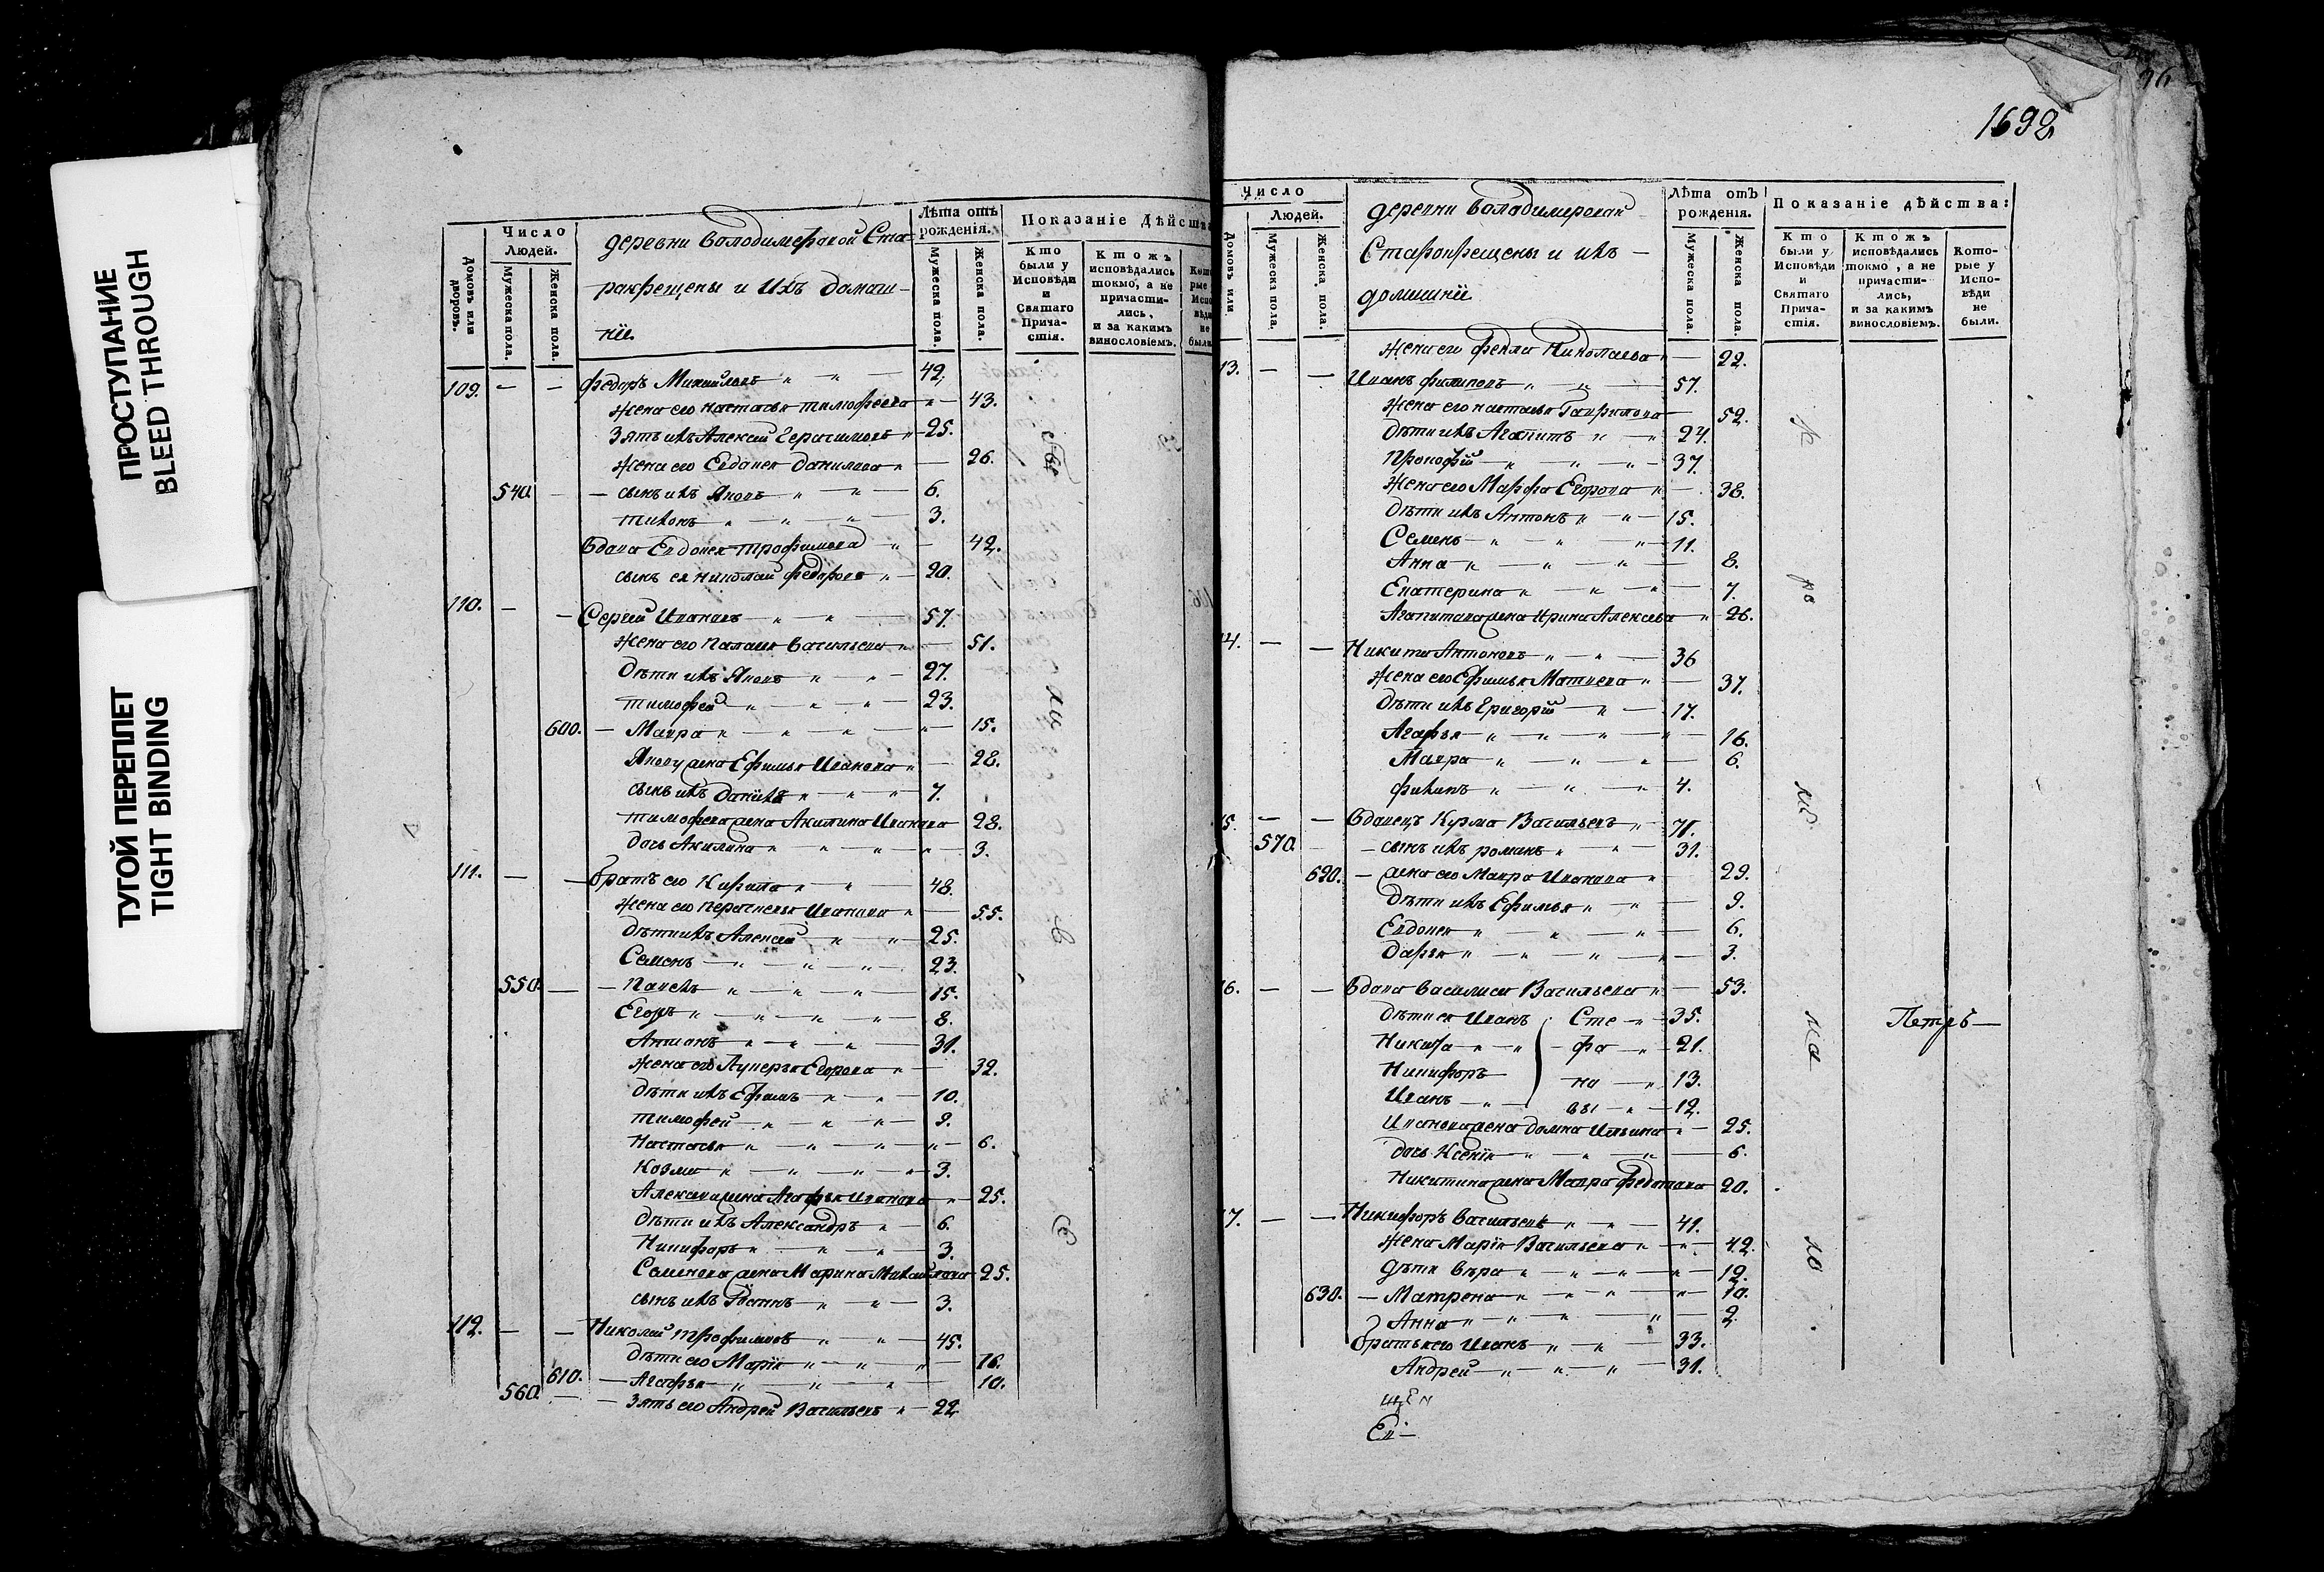 ПРОСТУПАНИЕ
BLEED THROUGH
ТУГОЙ ПЕРЕПЛЕТ
TIGHT BINDING
Домовъ или дворовъ.
Число Людей.
Мужеска пола.
Женска пола.
деревни володимерской Ста-
рокрещены и Ихъ домаш-
нїе.
Лѣта отъ рожденія.
Мужеска пола.
Женска пола.
Показаніе Дѣйства
Кто были у Исповѣди и Святаго Прича-стія.
Ктожъ исповѣдались токмо, а не причасти-лись, и за какимъ винословіемъ.
109. — — федоръ Михайловъ 42.
жена его настасья тимофеева 43.
Зять ихъ Алексей Герасимовъ 25.
жена его Евдокея данилова 26.
540. — сынъ ихъ Яковъ 6.
тихонъ 3.
вдова Евдокея трофимова 42.
сынъ ея николай федоровъ 20.
110. — — Сергей Ивановъ 57.
жена его Палагея васильева 51.
дѣти ихъ Яковъ 27.
тимофей 23.
600. — Мавра 15.
Якову жена Ефимья Иванова 28.
сынъ ихъ данїлъ 7.
тимофева жена Акилина Иванова 28.
дочь Акилина 3.
111. — — братъ его Кирила 48.
жена его Иванова 55.
дѣти ихъ Алексей 25.
Семенъ 23.
550. — Павелъ 15.
Егоръ 8.
Антонъ 31.
жена его Лукерья Егорова 32.
дѣти ихъ Ефимъ 10.
тимофей 9.
настасья 6.
козма 3.
Алексеева жена Агафья Иванова 25.
дѣти ихъ Александръ 6.
Никифоръ 3.
Семенова жена Марина Михайлова 25.
сынъ ихъ 3.
112. — — Николай трофимовъ 45.
дѣти его Марїя 16.
610. — Агафья 10.
560. — Зять его Андрей Васильевъ 22
1692
Домовъ или
Число Людей.
Мужеска пола.
Женска пола.
деревни володимерской
Старокрещены и ихъ —
домашнїе
Лѣта отъ рожденія.
Мужеска пола.
Женска пола.
Показаніе дѣйства:
Кто были у Исповѣди и Святаго Прича-стія.
Ктожъ исповѣдались токмо, а не причасти-лись, и за какимъ винословіемъ.
Кото-рые у Испо-вѣди не были.
жена его фекла николаева 22.
13. — — Иванъ филиповъ 57.
жена его настасья Гаврилова 52.
дѣти ихъ Агапитъ 24.
Прокофїй 37.
жена его Марфа Егорова 38.
дѣти ихъ Антонъ 15.
Семенъ 11.
Анна 8.
Екатерина 7.
Агапитова жена Ирина Алексеева 26.
14. — — Никита Антоновъ 36
жена его Ефимья Матвеева 37.
дѣти ихъ Григорїй 17.
Агафья 16.
Мавра 6.
филипъ 4.
15. — — вдовецъ Курма Васильевъ 71.
570. — сынъ ихъ романъ 31.
620. — жена его Мавра Иванова 29.
дѣти ихъ Ефимья 9.
Евдокея 6.
дарья 3.
16. — — вдова василиса Васильева 53.
дѣти ея Иванъ Сте 35.
Никита фа 21.
Никифоръ но 13.
Иванъ вы 12.
Иванова жена домна Ильина 25.
дочь Ксенїя 6.
Никитина жена Мавра федотова 20.
17. — — Никифоръ васильевъ 41.
жена Марїя Васильева 42.
дѣти вѣра 12.
630. — Матрена 10.
Анна 2.
братья его Иванъ 33.
Андрей 31.
Петръ —